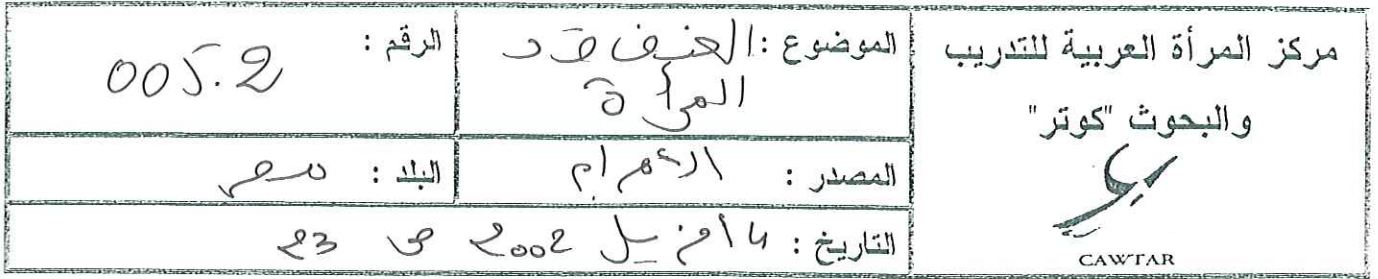 مركز المرأة العربية للتدريب
والبحوث "كوتر"
CAWTAR
الموضوع : العنف ضد
المرأة
الرقم :
005.2
المصدر : الأهرام
البلد : مصر
التاريخ : 4 أفريل 2002 ص 23